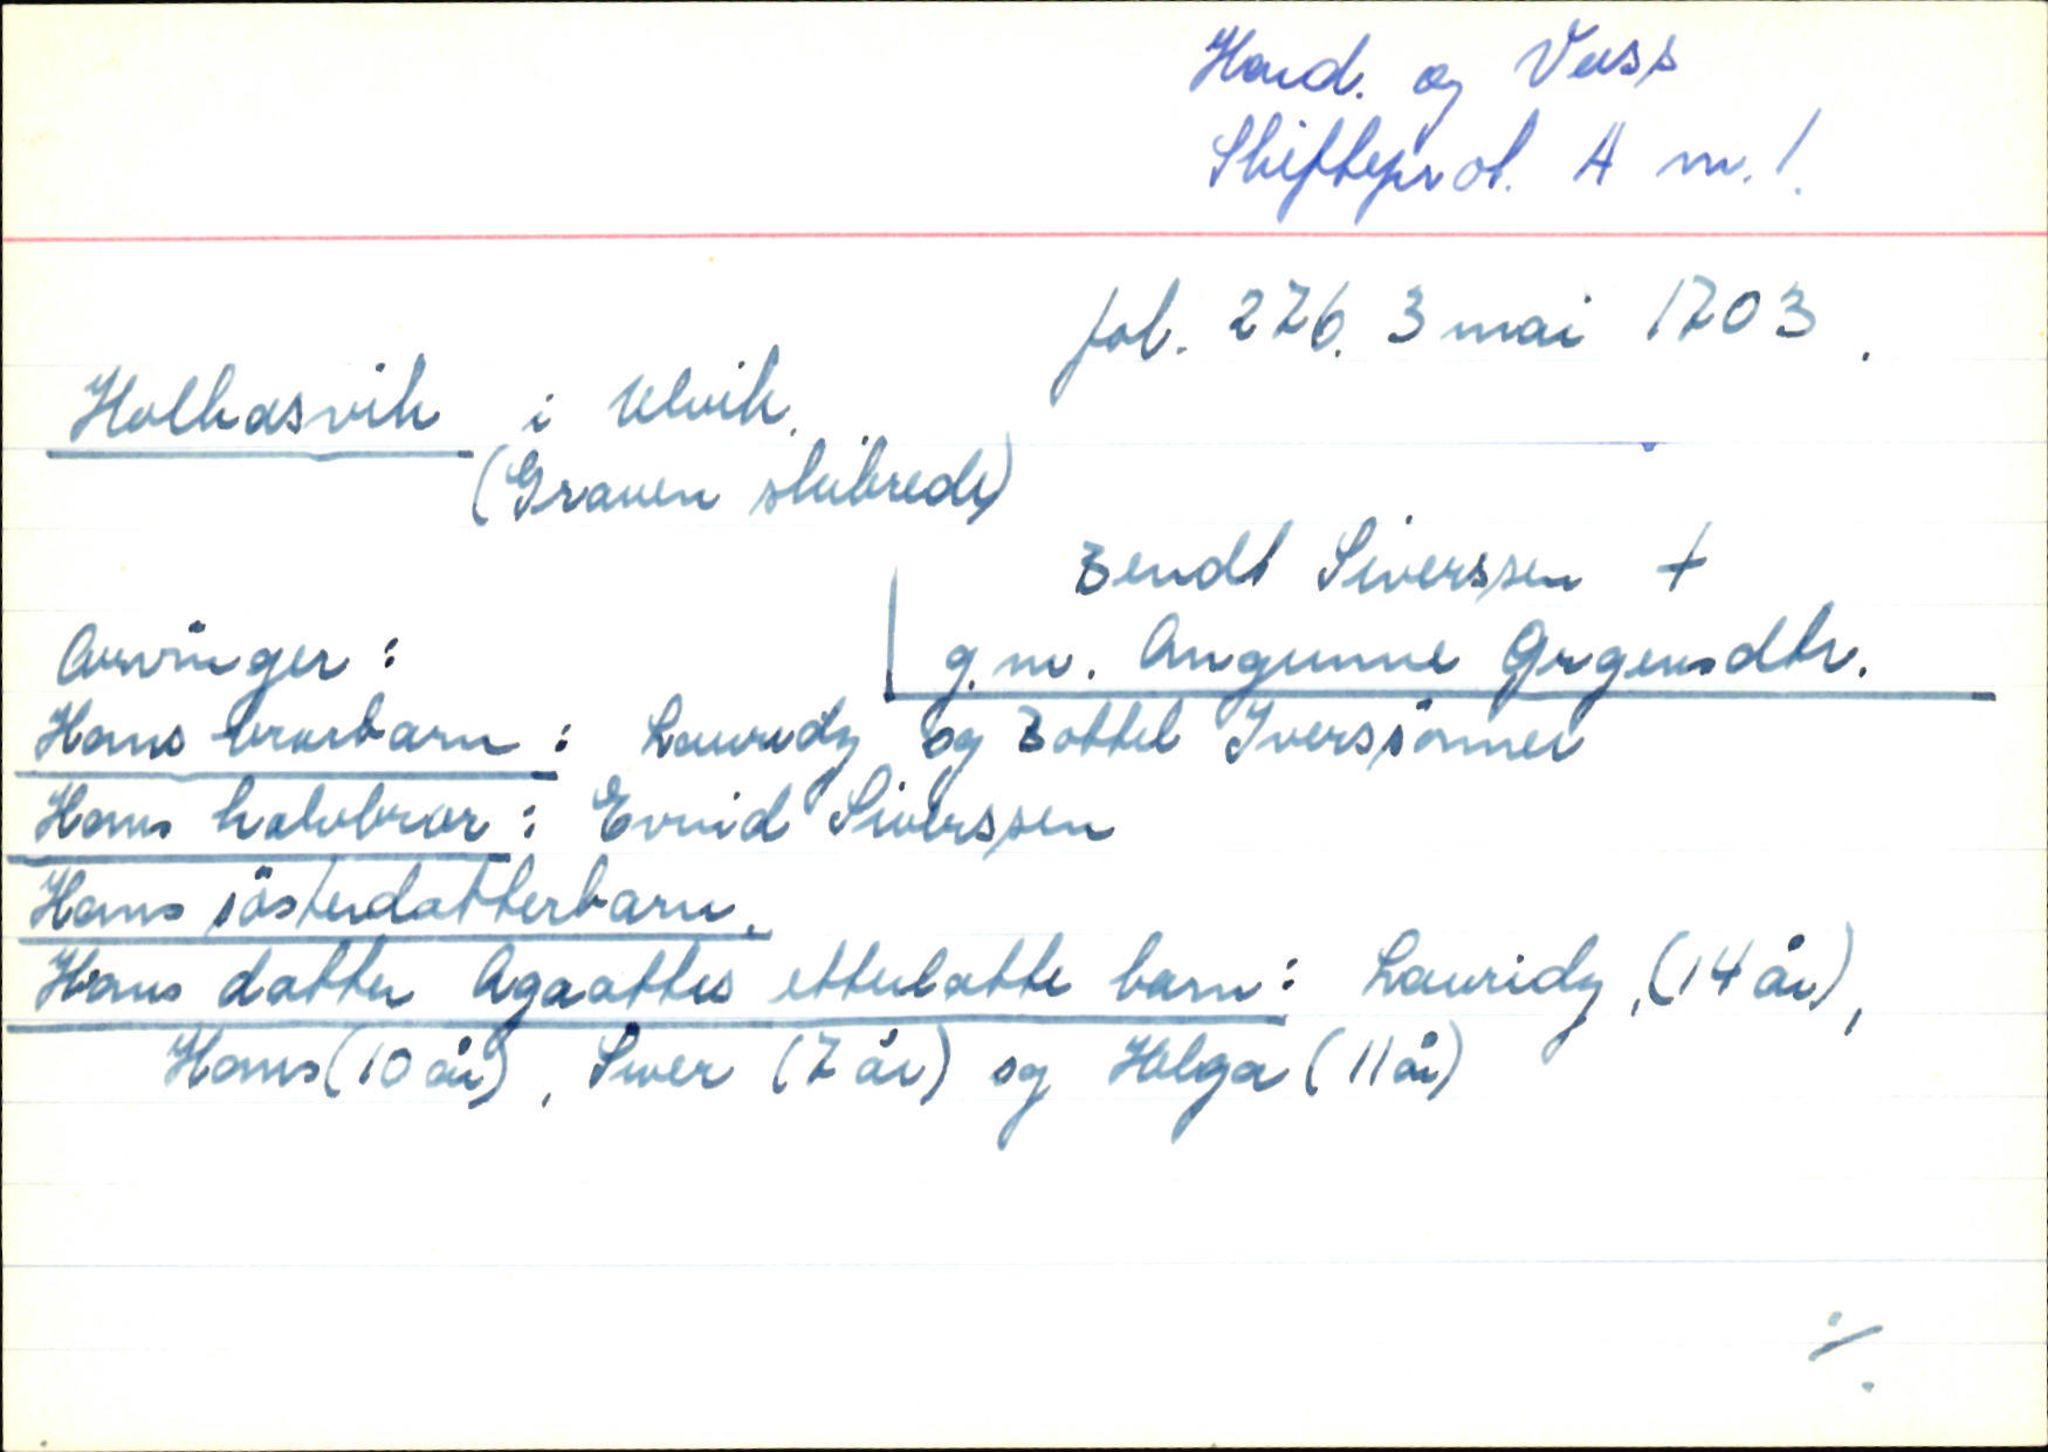 Hard. og Voss
Skifteprot. A nr. 1.
fol. 276. 3 mai 1703.
Holkasvik i Ulvik.
(Graven skibrede)
Bendt Siverssen +
g.m. Angunne Grgensdtr.
Arvinger:
Hans brorbarn: Lauridz og Bottel Iverssønner
Hans halvbror: Evind Siverssen
Hans søsterdatterbarn.
Hans datter Agaattes etterlatte barn: Lauridz, (14 år),
Hans (10 år), Siver (7 år) og Helga (11 år)
./.